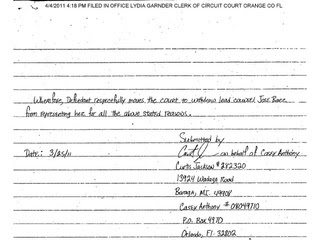 4/4/2011 4:18 PM FILED IN OFFICE LYDIA GARNDER CLERK OF CIRCUIT COURT ORANGE CO FL
Wherefore, Defendant respectfully moves the court to withdraw lead counsel Jose Baez
from representing her for all the above stated reasons.
Submitted by
Date: 3/25/11
on behalf of Casey Anthony
Curtis Jackson # 292320
13924 Wadaga Road
Baraga, MI 49908
Casey Anthony #
P.O. Box 4970
Orlando, FL 32802